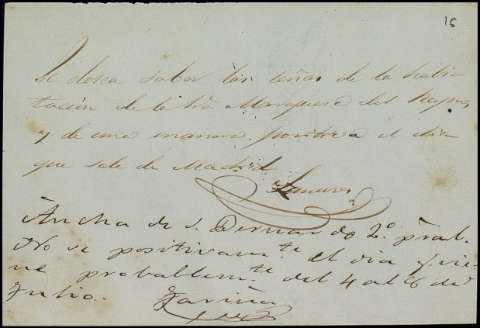 16
Se desea saber las señas de la habi-
tación de la Sra Marquesa del
y de una manera positiva el dia
que sale de Madrid.
Ancha de S. Bernardo 2º pral.
No se positivamte. el dia y vie-
ne probablemte. del 4 al 6 de
Julio. Fariña